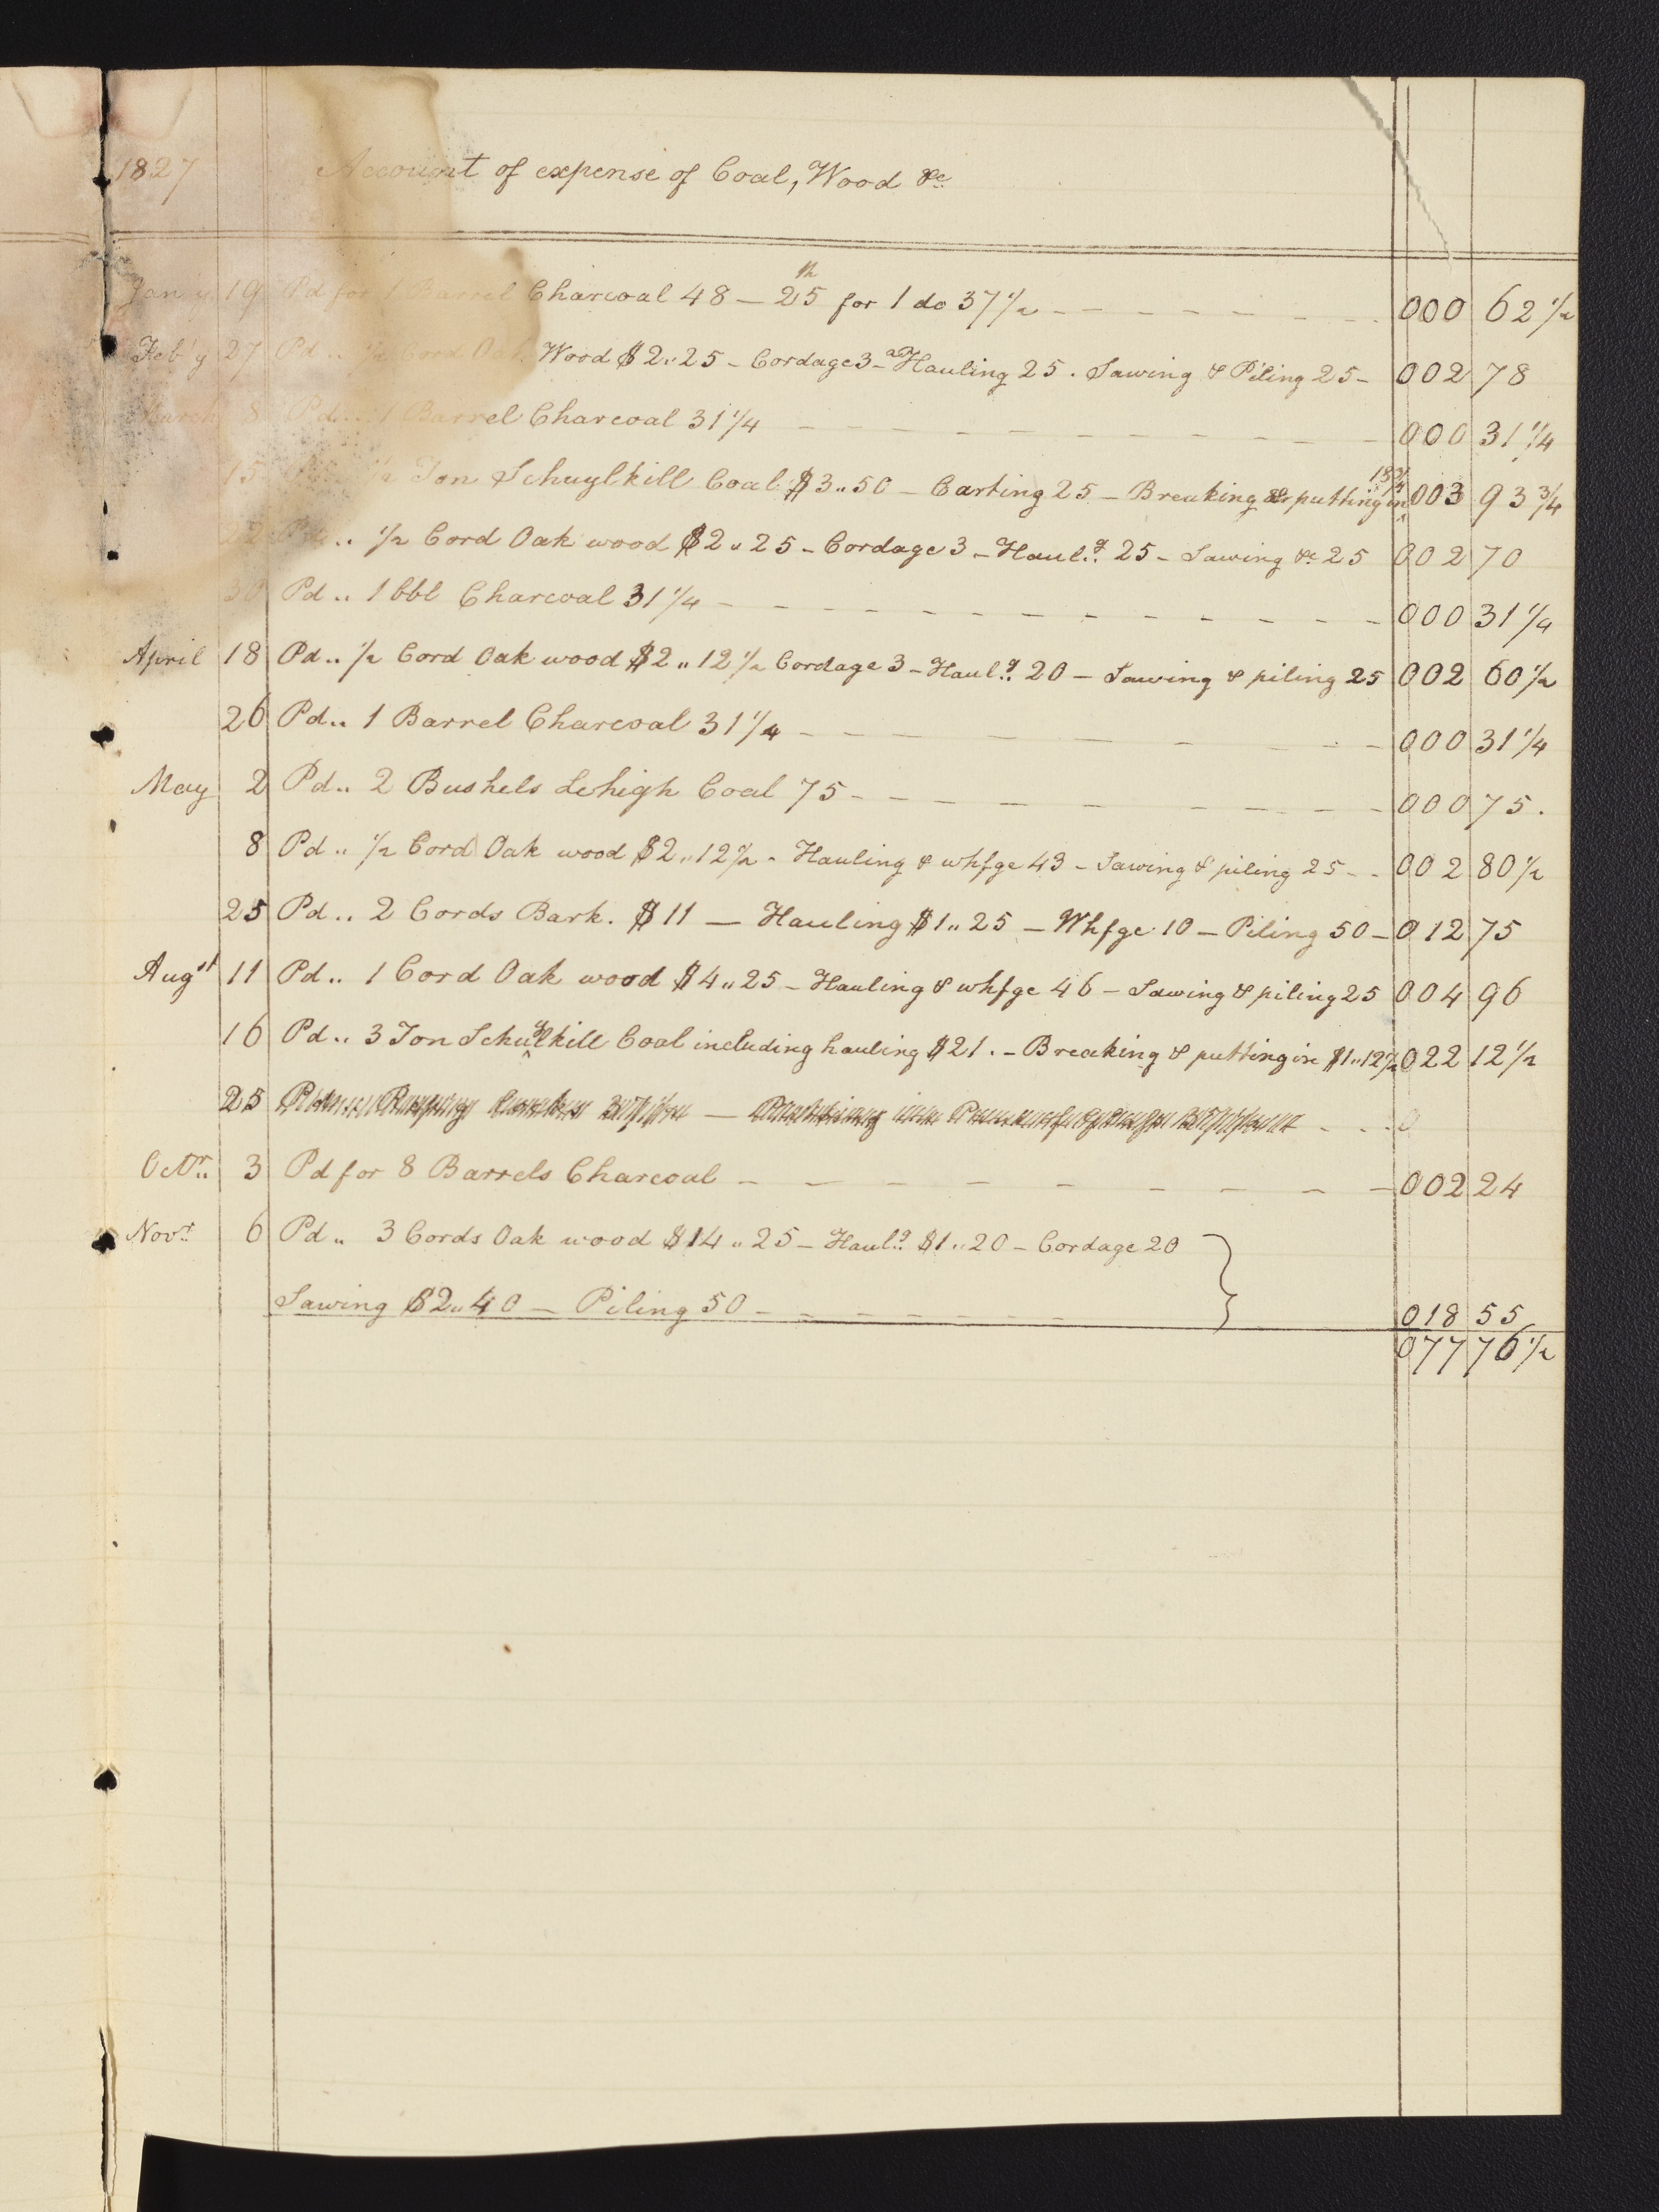 1827 Account of expense of Coal, Wood &c
Jan'y 19 Pd for 1 Barrel Charcoal 48 — 25th for 1 do 37 1/2 000 62 1/2
Feb'y 27 Pd .. 1/2 Cord Oak Wood $2..25 - Cordage 3 - Hauling 25 . Sawing & Piling 25 - 002 78
March 8 Pd .. 1 Barrel Charcoal 31 1/4 000 31 1/4
15 1/2 Ton Schuylkill Coal $3..50 - Carting 25 - Breaking & putting in 18 3/4 003 93 3/4
22 Pd .. 1/2 Cord Oak wood $2..25 - Cordage 3 - Haul.g 25 - Sawing &c 25 002 70
30 Pd .. 1 bbl Charcoal 31 1/4 000 31 1/4
April 18 Pd .. 1/2 Cord Oak wood $2..12 1/2 Cordage 3 - Haul.g 20 — Sawing & piling 25 002 60 1/2
26 Pd .. 1 Barrel Charcoal 31 1/4 000 31 1/4
May 2 Pd .. 2 Bushels Lehigh Coal 75 000 75 .
8 Pd .. 1/2 Cord Oak wood $2..12 1/2 - Hauling & whfge 43 - Sawing & piling 25 002 80 1/2
25 Pd .. 2 Cords Bark . $11 — Hauling $1..25 — Whfge 10 — Piling 50 - 012 75
Augst 11 Pd .. 1 Cord Oak wood $4..25 - Hauling & whfge 46 - Sawing & piling 25 004 96
16 Pd .. 3 Ton Schuylkill Coal including hauling $21 . - Breaking & putting in $1..12 1/2 022 12 1/2
25 0
Octr.. 3 Pd for 8 Barrels Charcoal 002 24
Novr 6 Pd .. 3 Cords Oak wood $14..25 - Haul.g $1..20 - Cordage 20
Sawing $2..40 — Piling 50 018 55
077 76 1/2